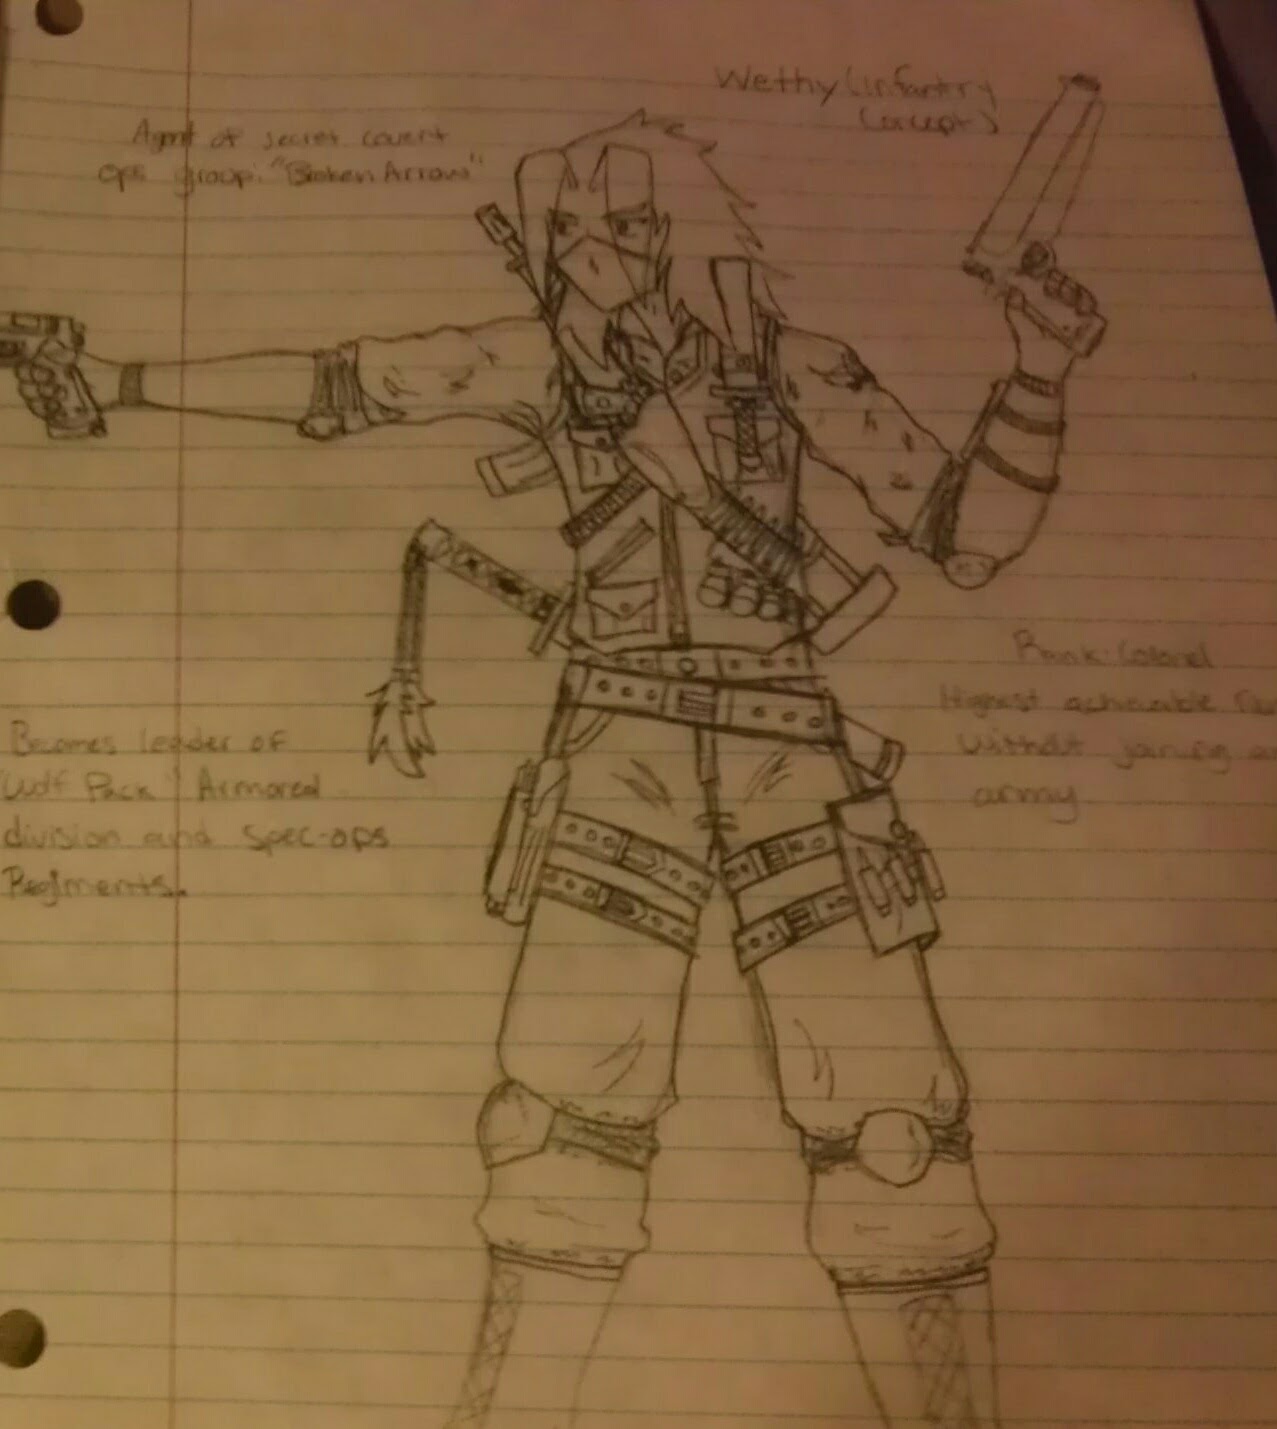 Wethy (infantry
Concept)
Agent of secret covert
ops group: "Broken Arrow"
Rank: Colonel
Highest achievable
without joining
army
Becomes leader of
"Wolf Pack" Armored
division and Spec-ops
Regiments.